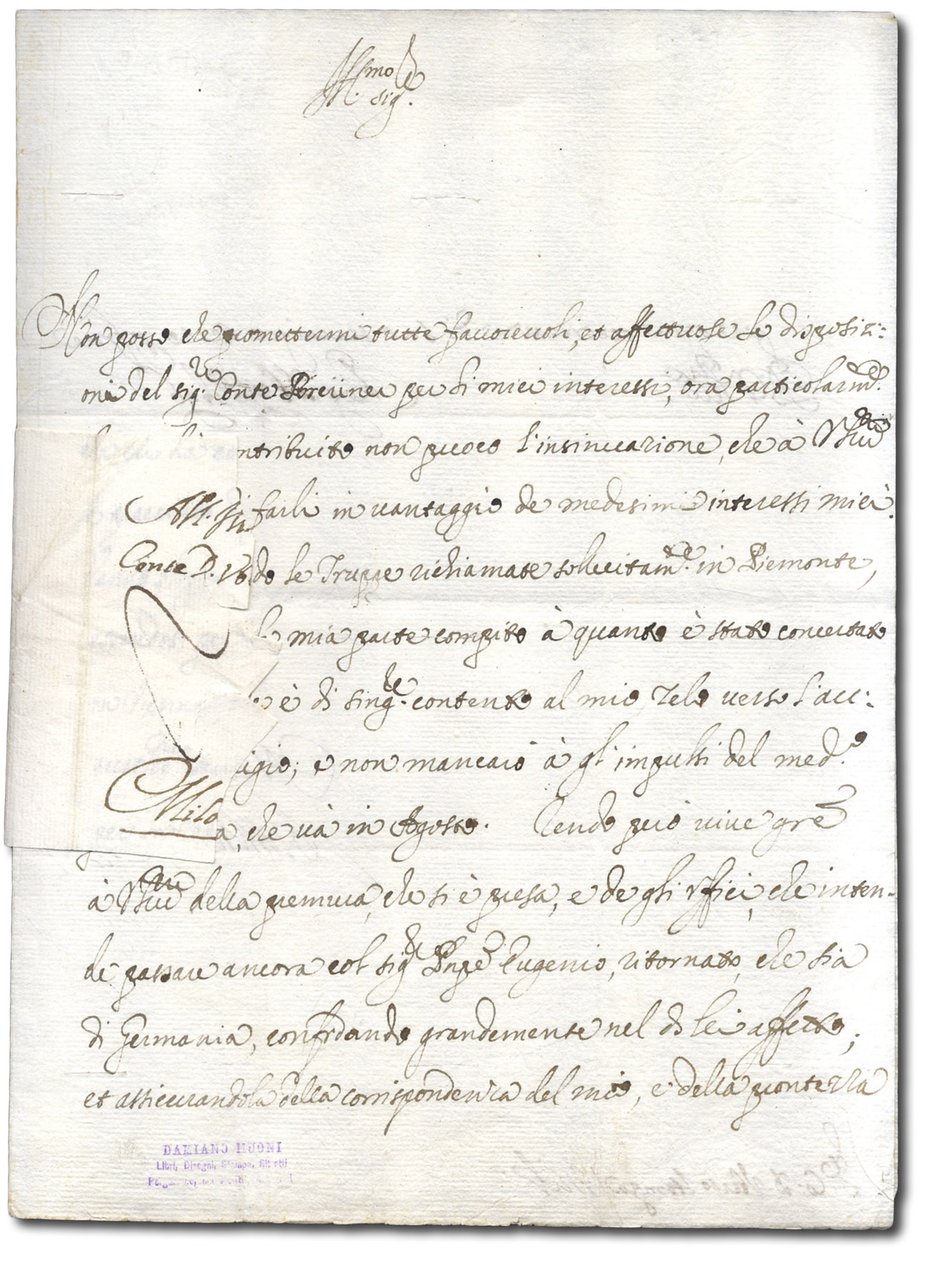 Ill.mo Sig.re
Non posso che promettermi tutte favorevoli, et affettuose le disposiz:
oni del sig.re Conte Preiner per li miei interessi, ora particolarm.te
ntribuito non puoco l'insinuazione, che à
farli in vantaggio de medesimi interessi miei.
Conte D.
do le Truppe richiamate sollecitam.te in Piemonte,
mia parte compito à quanto è stato concertato
è di sing.re contento al mio zelo verso l'acc:
igio; e non mancarò à gl'impulsi del med.o
Mila
a, che và in Agosto. Rendo però vive gre
à della premura, che si è presa, e de gli uffici, che inten-
de passare ancora col sig.r Pnpe Eugenio, ritornato, che sia
di Germania, confidando grandemente nel di lei affetto;
et assicurandola della corrispondenza del mio, e della prontezza
DAMIANO MUONI
Libri, Disegni, Stampe,